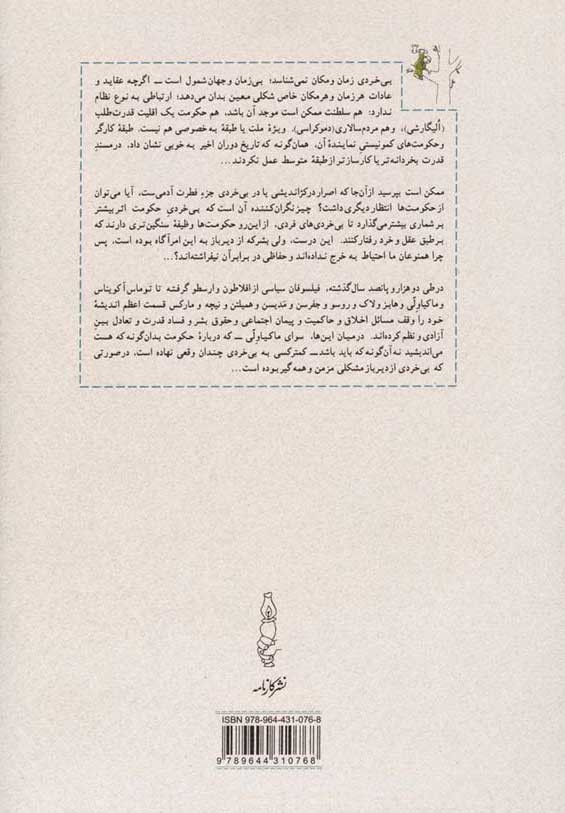 بی‌خردی زمان و مکان نمی‌شناسد؛ بی‌زمان و جهان‌شمول است ــ اگرچه عقاید و
عادات هر زمان و هر مکان خاص شکلی معین بدان می‌دهد؛ ارتباطی به نوع نظام
ندارد: هم سلطنت ممکن است موجد آن باشد، هم حکومت یک اقلیت قدرت‌طلب
(اُلیگارشی)، و هم مردم‌سالاری (دموکراسی). ویژهٔ ملت یا طبقهٔ به خصوصی هم نیست. طبقهٔ کارگر
و حکومت‌های کمونیستیِ نمایندهٔ آن، همان‌گونه که تاریخ دوران اخیر به خوبی نشان داد، در مسند
قدرت بخردانه‌تر یا کارسازتر از طبقهٔ متوسط عمل نکردند...
ممکن است بپرسید از آن‌جا که اصرار در کژاندیشی یا در بی‌خردی جزء فطرت آدمی‌ست، آیا می‌توان
از حکومت‌ها انتظار دیگری داشت؟ چیز نگران‌کننده آن است که بی‌خردیِ حکومت اثر بیشتر
بر شماری بیشتر می‌گذارد تا بی‌خردی‌های فردی، از این رو حکومت‌ها وظیفهٔ سنگین‌تری دارند که
بر طبق عقل و خرد رفتار کنند. این درست، ولی بشر که از دیرباز به این امر آگاه بوده است، پس
چرا همنوعان ما احتیاط به خرج نداده‌اند و حفاظی در برابر آن نیفراشته‌اند؟...
در طی دو هزار و پانصد سال گذشته، فیلسوفان سیاسی از افلاطون و ارسطو گرفته تا توماس آکویناس
و ماکیاولّی و هابز و لاک و روسو و جفرسن و مَدیسن و همیلتن و نیچه و مارکس قسمت اعظم اندیشهٔ
خود را وقف مسائل اخلاق و حاکمیت و پیمان اجتماعی و حقوق بشر و فساد قدرت و تعادل بینِ
آزادی و نظم کرده‌اند. در میان این‌ها، سوای ماکیاولّی ــ که دربارهٔ حکومت بدان‌گونه که هست
می‌اندیشید نه آن‌گونه که باید باشد ــ کمتر کسی به بی‌خردی چندان وقعی نهاده است، در صورتی
که بی‌خردی از دیرباز مشکلی مزمن و همه‌گیر بوده است...
نشر کارنامه
ISBN 978-964-431-076-8
9 789644 310768